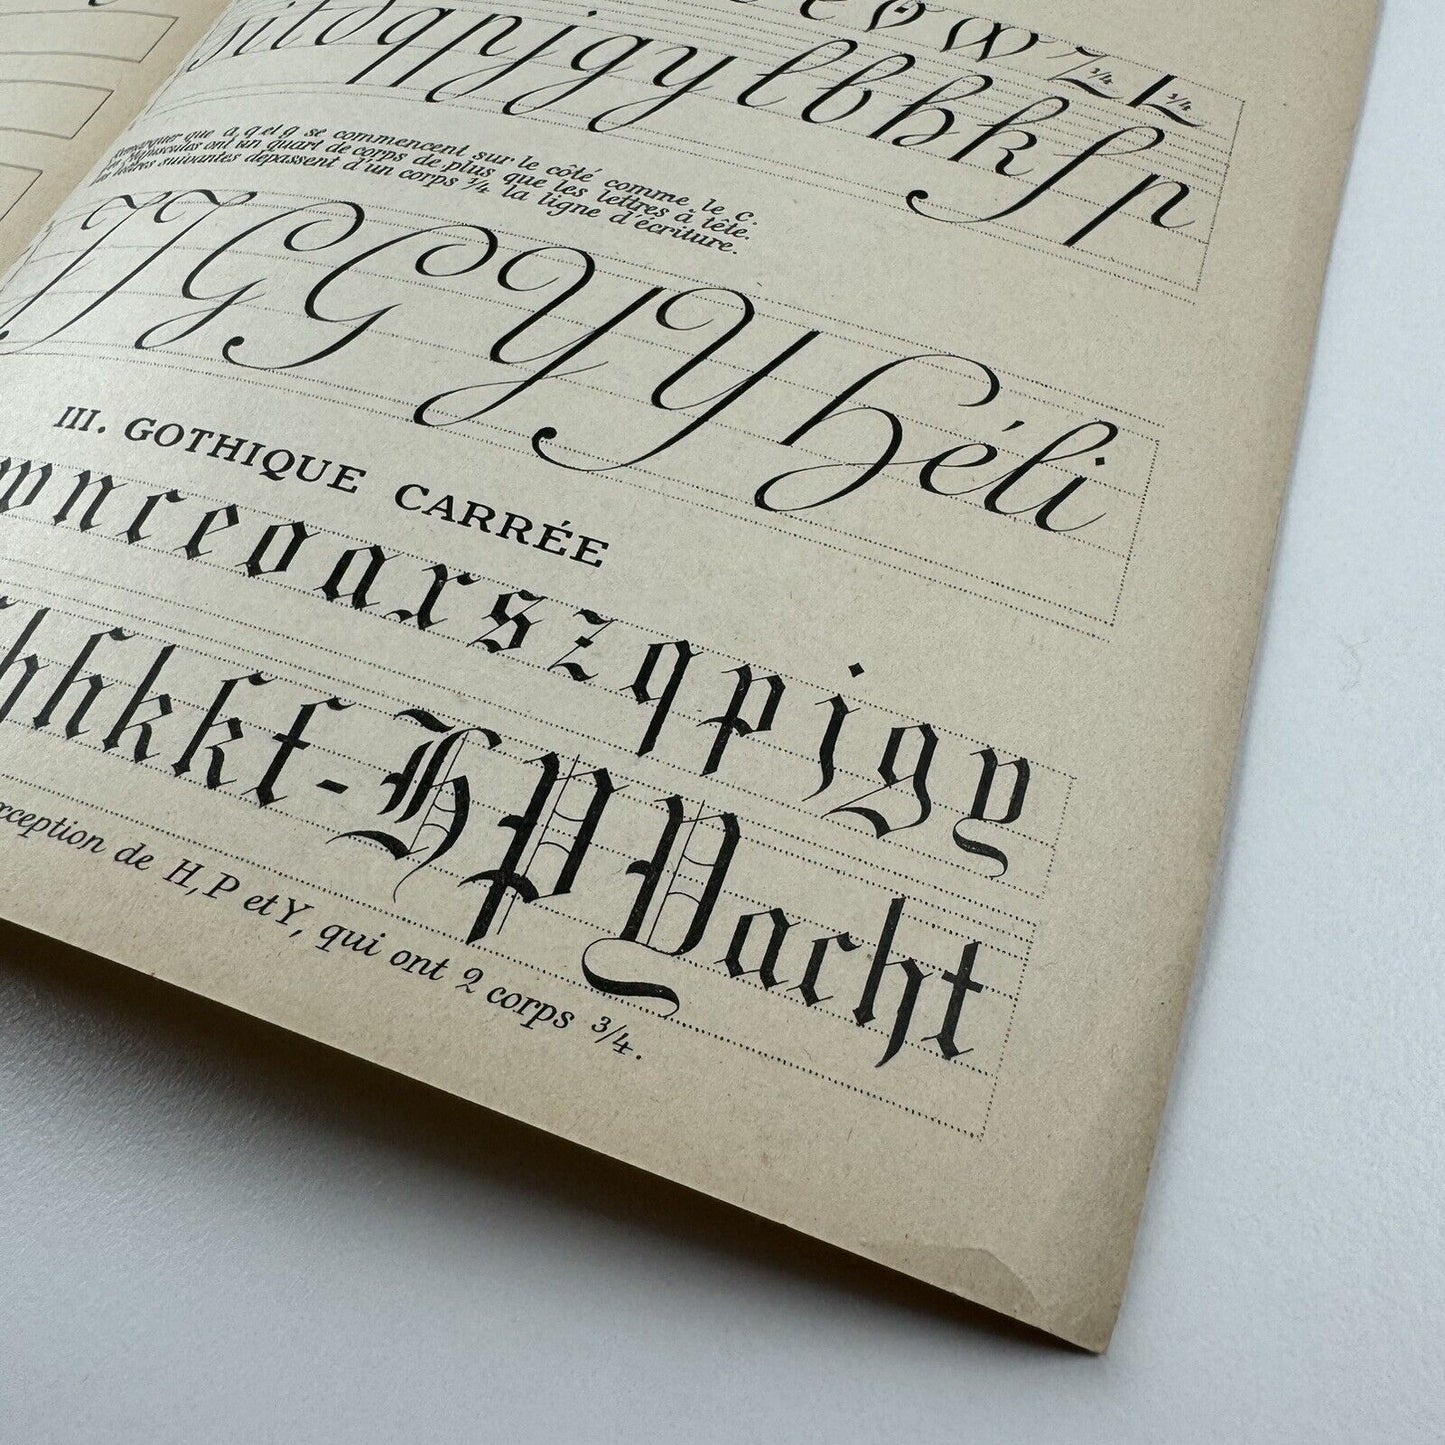 e o w z ¾ L ¾
j i t d q p j g y l b h k f p
Remarquer que a, q et g se commencent sur le côté comme le c.
Les Majuscules ont un quart de corps de plus que les lettres à tête.
Les lettres suivantes dépassent d'un corps ¾ la ligne d'écriture.
J J G G Y Y Héli
III. GOTHIQUE CARRÉE
w n c e o a x s z q p j g y
h h k k f t - H P Yacht
exception de H, P et Y, qui ont 2 corps ¾.